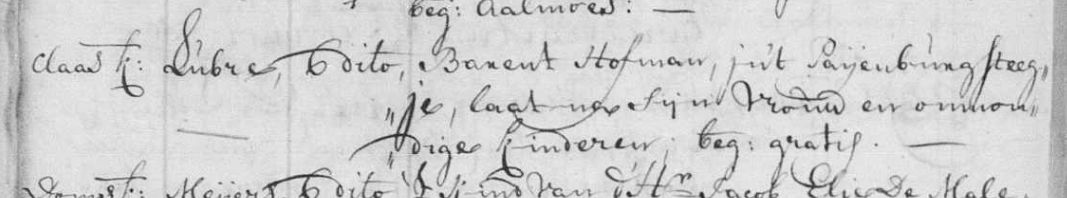 beg: Aalmoes: —
Claas k: Lubre, 6 dito, Barent Hofman, in't Paijenburg steeg„
„je, laat na sijn Vrouw en onmon„
„dige kinderen, beg: gratis. —
Doms k: Meijers 6 dito 't kind van d'Hr Jacob Elie De Male.